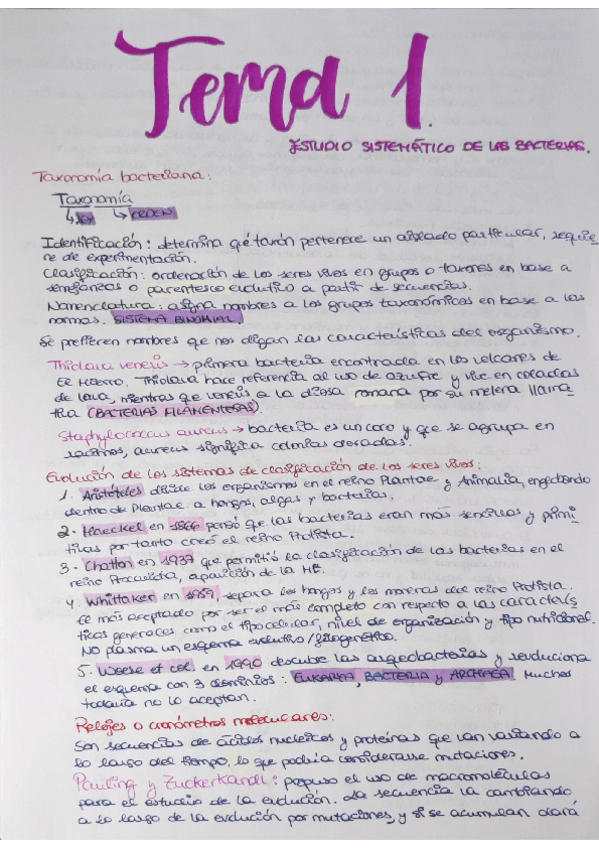 Tema 1.
ESTUDIO SISTEMÁTICO DE LAS BACTERIAS.
Taxonomía bacteriana:
Taxonomía
↳ LEY ↳ ORDEN
Identificación: determina qué taxón pertenece un aislado particular, requie
re de experimentación.
Clasificación: ordenación de los seres vivos en grupos o taxones en base a
semejanzas o parentesco evolutivo a partir de secuencias.
Nomenclatura: asigna nombres a los grupos taxonómicos en base a las
normas. SISTEMA BINOMIAL.
Se prefieren nombres que nos digan las características del organismo.
Thiolava veneris → primera bacteria encontrada en los volcanes de
El Hierro. Thiolava hace referencia al uso de azufre y vive en coladas
de lava, mientras que veneris a la diosa romana por su melena
(BACTERIAS FILAMENTOSAS).
Staphylococcus aureus → bacteria es un coco y que se agrupa en
racimos, aureus significa colonias doradas.
Evolución de los sistemas de clasificación de los seres vivos:
1. Aristóteles divide los organismos en el reino Plantae y Animalia, englobando
dentro de Plantae a hongos, algas y bacterias.
2. Haeckel en 1866 pensó que las bacterias eran más sencillas y primi
tivas por tanto creó el reino Protista.
3. Chatton en 1937 que permitió la clasificación de las bacterias en el
reino Procariota, aparición de la ME.
4. Whittaker en 1959, separa los hongos y los moneras del reino Protista.
El más aceptado por ser el más completo con respecto a las caracterís
ticas generales como el tipo celular, nivel de organización y tipo nutricional.
No plasma un esquema evolutivo/filogenético.
5. Woese et col. en 1990 descubre las arqueobacterias y revoluciona
el esquema con 3 dominios: EUKARYA, BACTERIA y ARCHAEA. Muchos
todavía no lo aceptan.
Relojes o cronómetros moleculares:
Son secuencias de ácidos nucleicos y proteínas que van variando a
lo largo del tiempo, lo que podría considerarse mutaciones.
Pauling y Zuckerkandl: propuso el uso de macromoléculas
para el estudio de la evolución. La secuencia la cambiando
a lo largo de la evolución por mutaciones, y si se acumulan dará